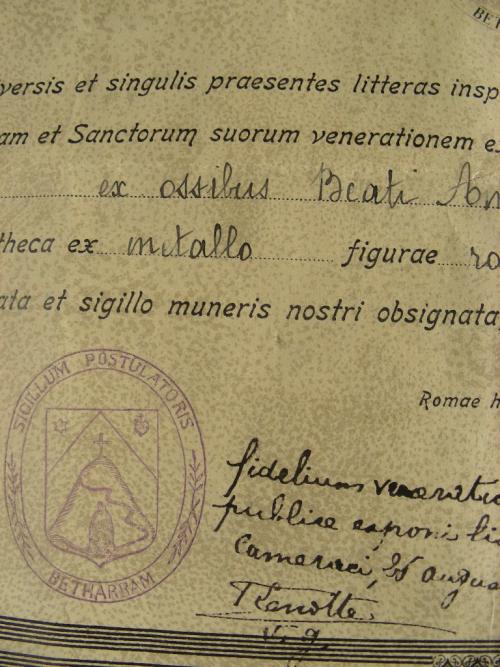 BET
versis et singulis praesentes litteras insp
am et Sanctorum suorum venerationem e
ex ossibus Beati An
theca ex metallo figurae ro
ata et sigillo muneris nostri obsignata,
Romae h
SIGILLUM POSTULATORIS
BETHARRAM
fidelium veneratio
publice exponi lic
Cameraci, 25 augus
V. g.